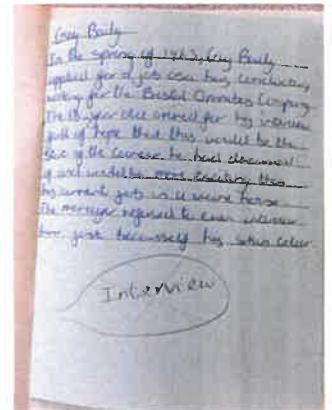 Guy Baily
In the spring of 1963, Guy Baily
applied for a job as a bus conductor
for the Bristol Omnibus Company
The year old arrived for his interview
full of hope that this would be the
of the he had dreamed
of and would be more exciting than
his current job in a
The manager refused to even interview
him just his skin colour
Interview